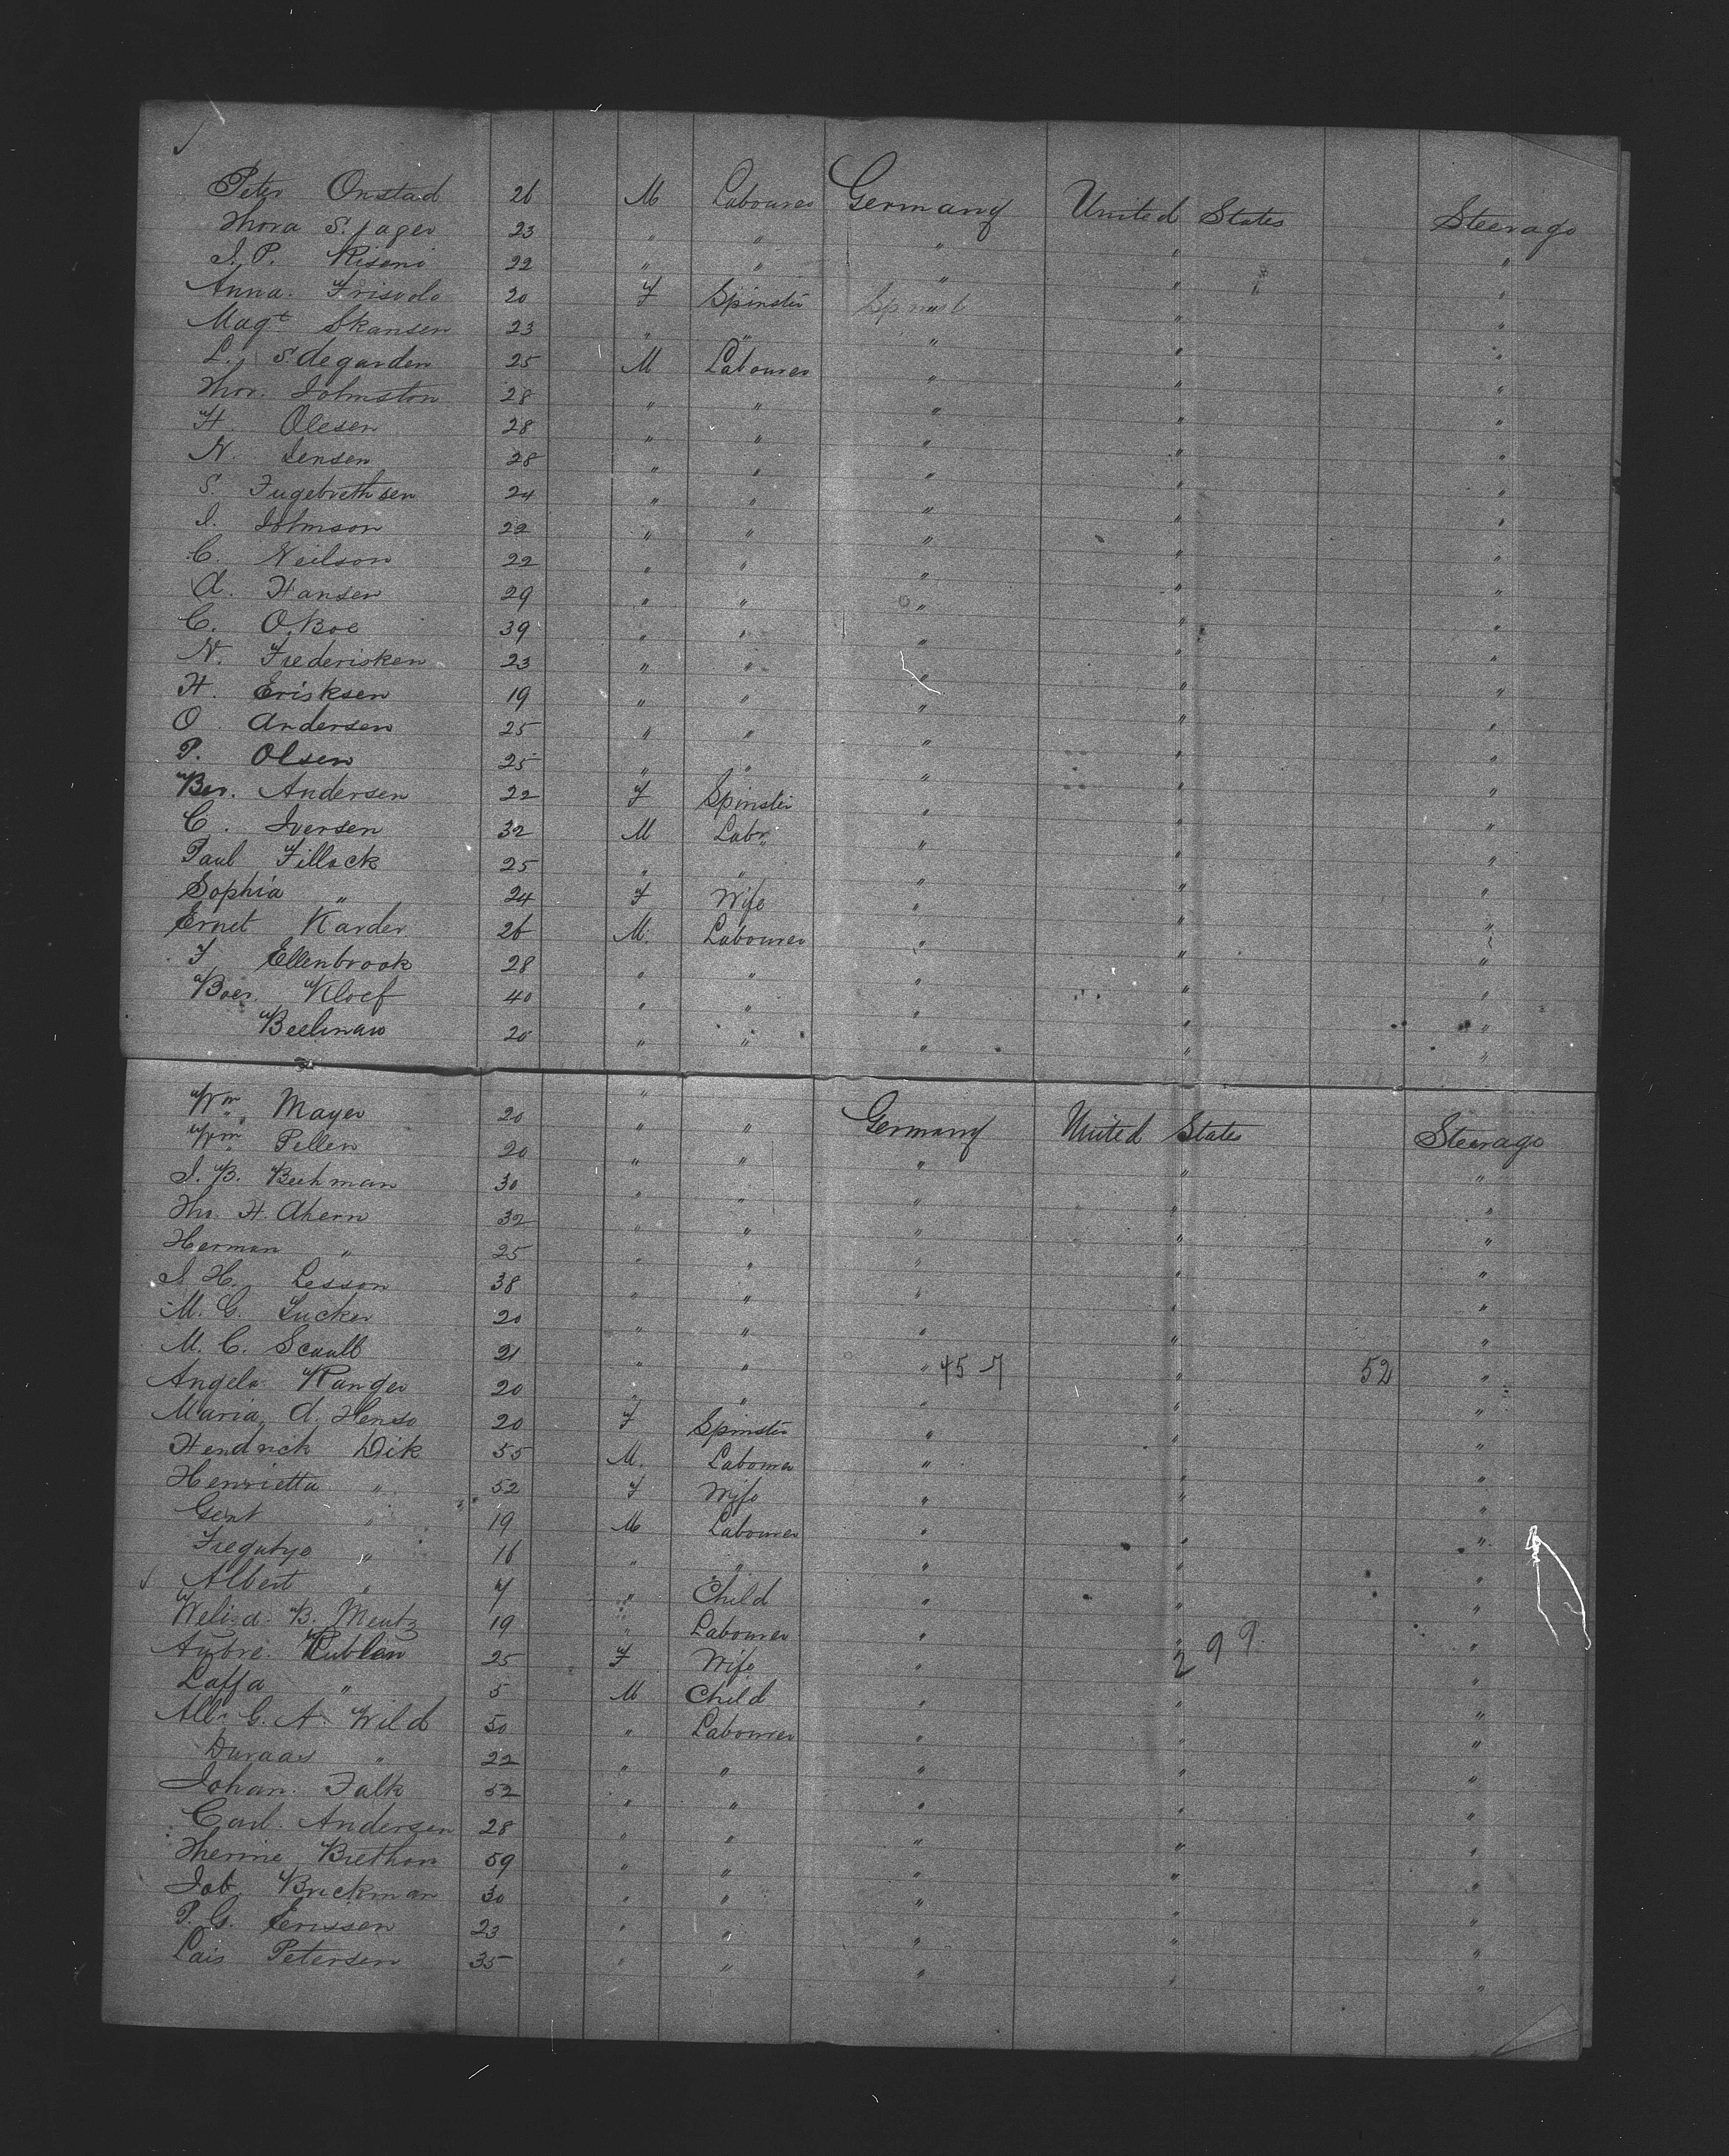 Peter Onstad 26 M Labourer Germany United States Steerage
Thora S. jager 23 " " " " "
I. P. Riseni 22 " " " " "
Anna. Frisvolo 20 F Spinster " " "
Magt Skansen 23 " " " " "
L. Sidegarden 25 M Labourer " " "
Thor. Johnston 28 " " " " "
H. Olesen 28 " " " " "
N. Jensen 28 " " " " "
S. Fugebrethsen 24 " " " " "
I. Johnson 22 " " " " "
C. Neilson 22 " " " " "
A. Hansen 29 " " " " "
C. O. Boe 39 " " " " "
N. Frederisken 23 " " " " "
H. Erisksen 19 " " " " "
O. Andersen 25 " " " " "
P. Olsen 25 " " " " "
Ber. Andersen 22 F Spinster " " "
C. Iversen 32 M Labr. " " "
Paul Fillack 25 " " " " "
Sophia " 24 F Wife " " "
Ernet Karder 26 M. Labourer " " "
F Ellenbrook 28 " " " " "
Boer. Kloef 40 " " " " "
Beelman 20 " " " " "
Wm Mayer 20 " " Germany United States Steerage
Wm Pellen 20 " " " " "
I. B. Beehman 30 " " " " "
Ths. H. Ahern 32 " " " " "
Herman " 25 " " " " "
I. H. Lesson 38 " " " " "
M. G. Lucker 20 " " " " "
M. C. Scaull 21 " " " 457 " 52 "
Angelo Ranger 20 " " " " "
Maria A. Henso 20 F Spinster " " "
Hendrick Dik 55 M. Labourer " " "
Henrietta " 52 F Wife " " "
Gert " 19 M Labourer " " "
Fregatye " 16 " " " " "
Albert " 7 " Child " " "
Weliza. B. Mentz 19 " Labourer " " 299 "
Aubre. Rublen 25 F Wife " "
Laffa " 5 M Child " " "
Alb. G. A. Wild 50 " Labourer " " "
Duraas " 22 " " " " "
Johan. Falk 52 " " " " "
Carl. Andersen 28 " " " " "
Therine Brethon 59 " " " " "
Job Brickman 30 " " " " "
P. G. Erissen 23 " " " " "
Lais Petersen 35 " " " " "